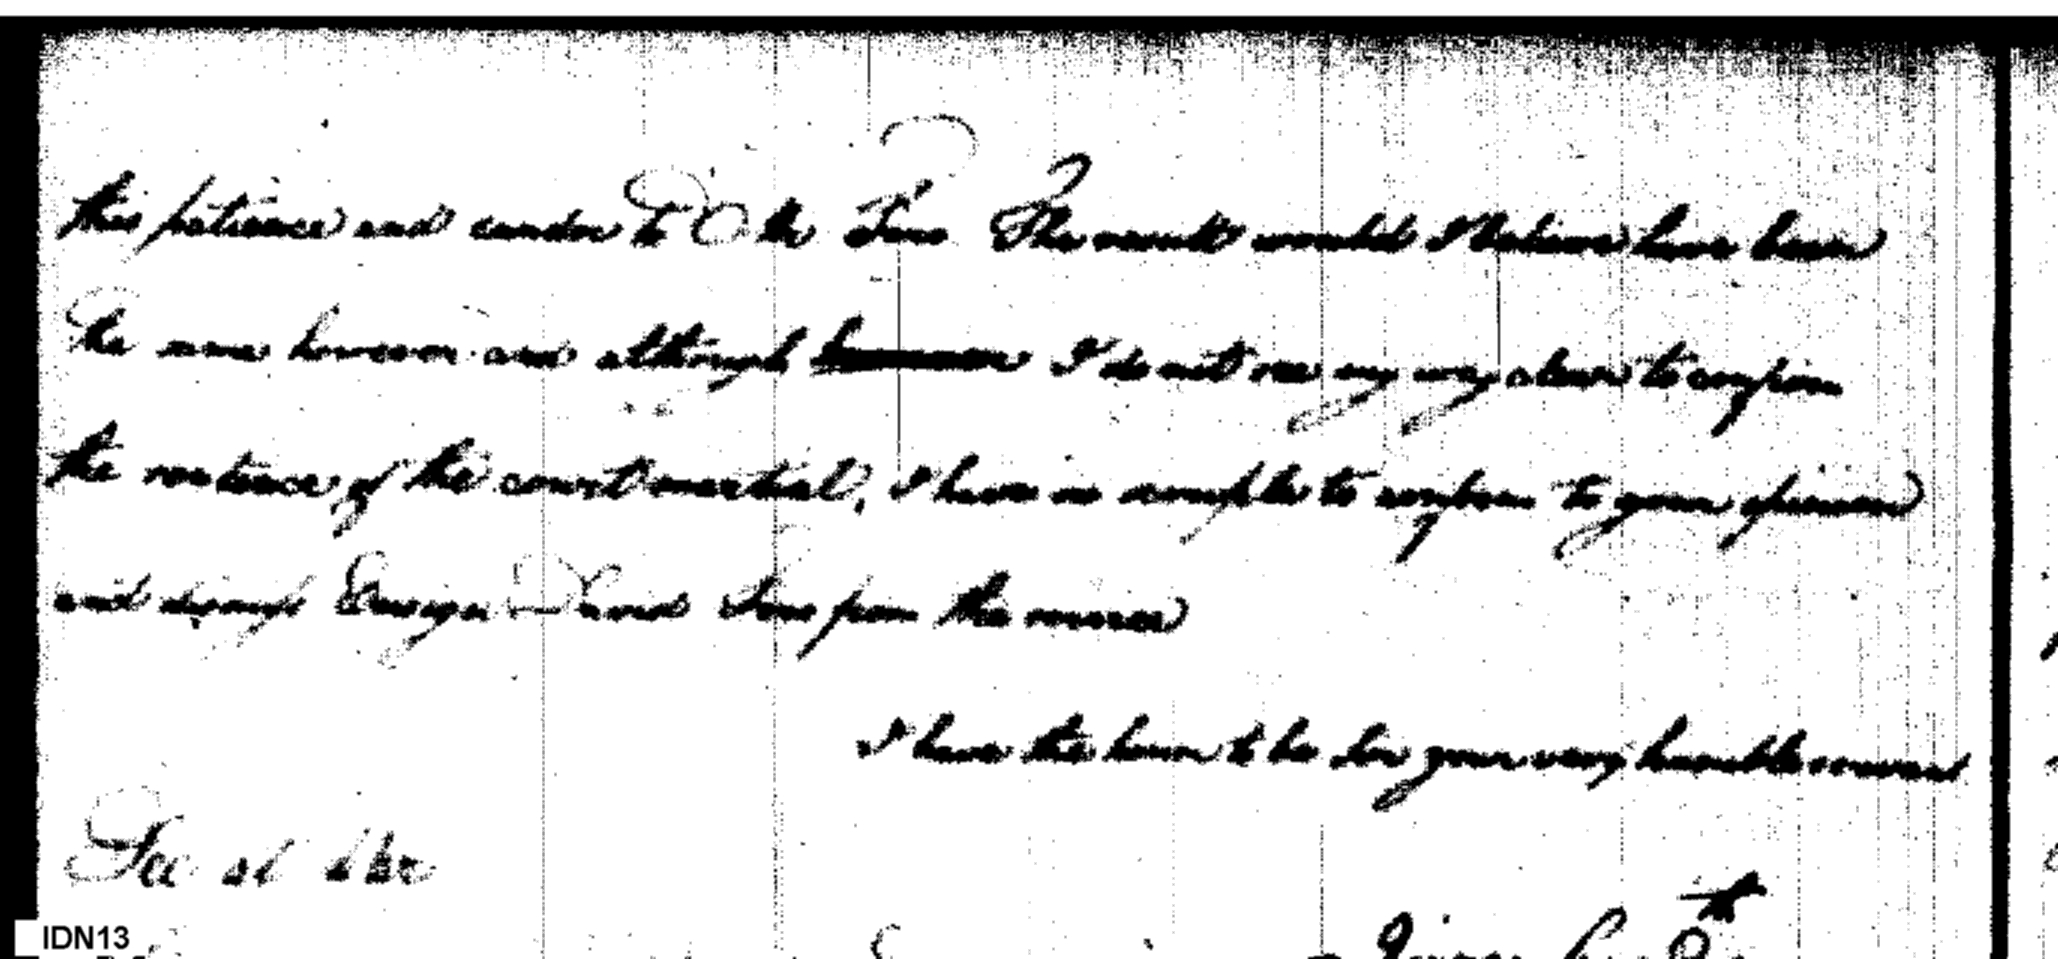 this patience and candor to the The result would I believe have been
the same however and although I do not see my way clear to confirm
the sentence of the court martial, I have no scruple to conform to your opinion
and dismiss Ensign from the service
I have the honor to be Sir your very humble servant
IDN13